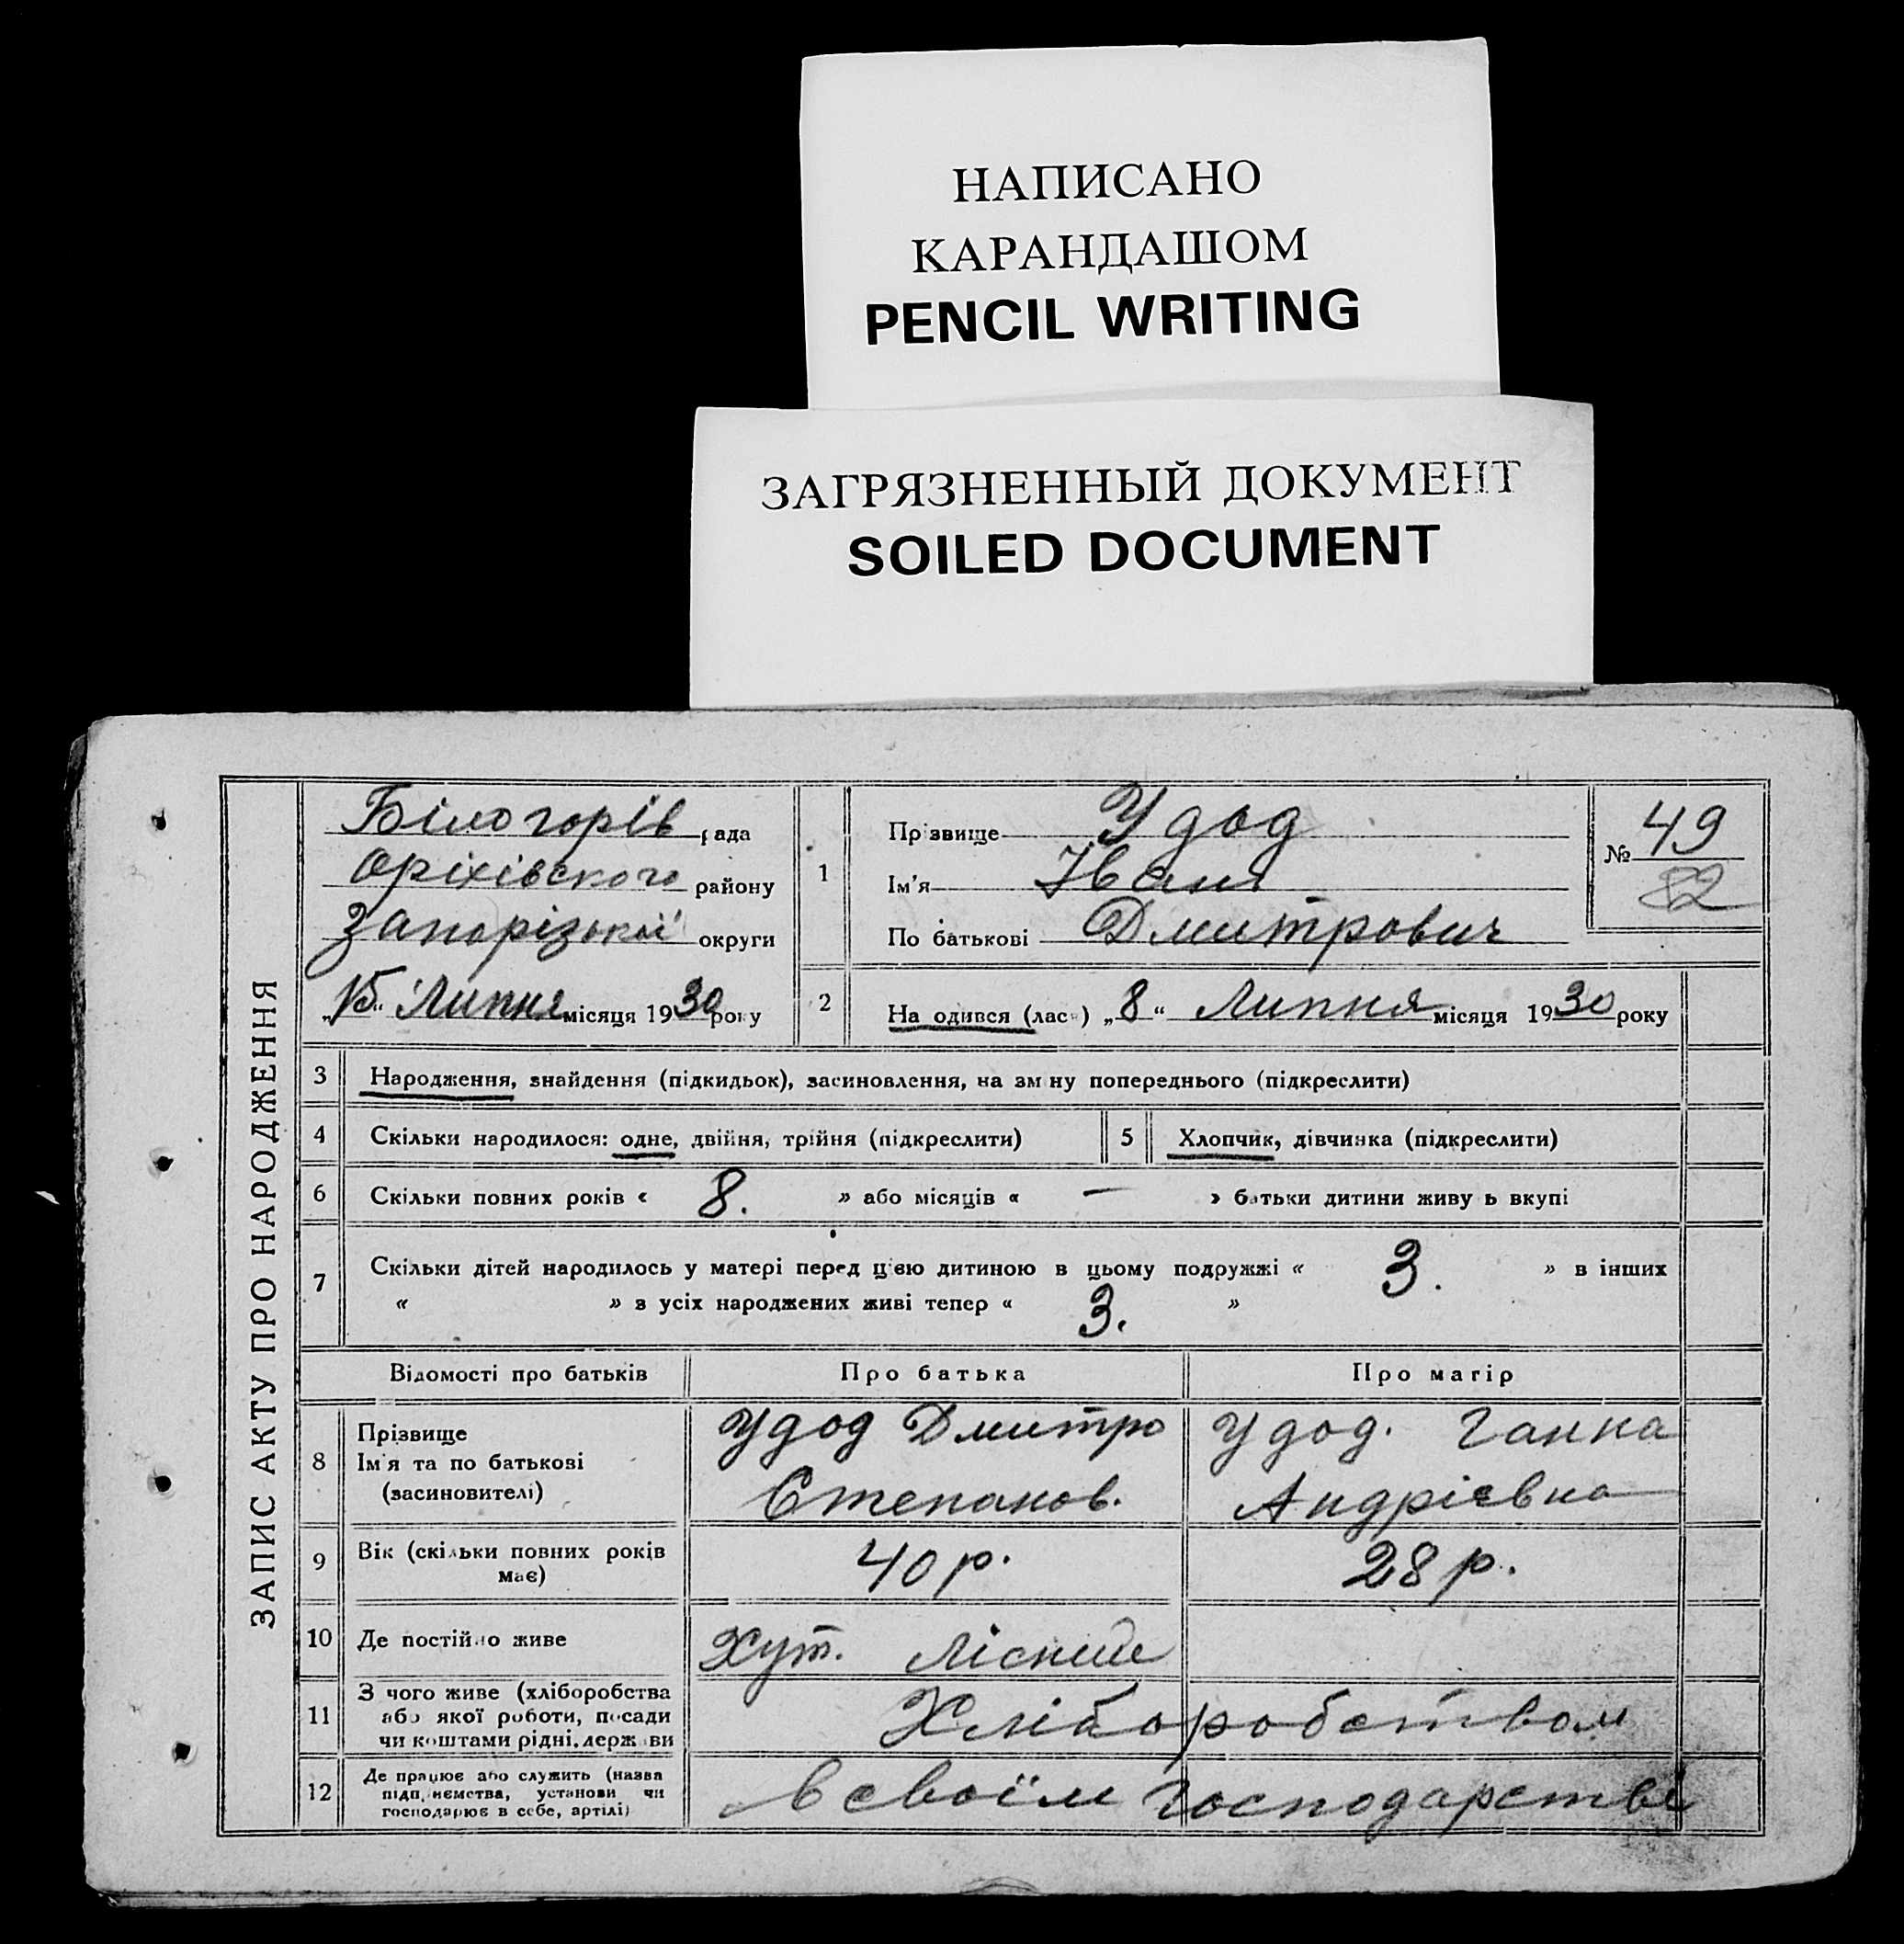 НАПИСАНО
КАРАНДАШОМ
PENCIL WRITING
ЗАГРЯЗНЕННЫЙ ДОКУМЕНТ
SOILED DOCUMENT
ЗАПИС АКТУ ПРО НАРОДЖЕННЯ
Білогорів рада
Оріхівского району
Запорізької округи
„15“ Липня місяця 1930 року
1
Прізвище Удод
Ім'я Іван
По батькові Дмитрович
№ 49
82
2 Народився (лась) „8“ Липня місяця 1930 року
3 Народження, знайдення (підкидьок), засиновлення, на зміну попереднього (підкреслити)
4 Скільки народилося: одне, двійня, трійня (підкреслити) 5 Хлопчик, дівчинка (підкреслити)
6 Скільки повних років « 8. » або місяців « — » батьки дитини живуть вкупі
7 Скільки дітей народилось у матері перед цією дитиною в цьому подружжі « 3. » в інших
« » з усіх народжених живі тепер « 3. »
Відомості про батьків Про батька Про матір
8 Прізвище
Ім'я та по батькові
(засиновителі)
Удод Дмитро
Степанов.
Удод. Ганна
Андрієвна
9 Вік (скільки повних років
має)
40 р. 28 р.
10 Де постійно живе Хут.
11 З чого живе (хліборобства
або якої роботи, посади
чи коштами рідні, держави
Хліборобством
12 Де працює або служить (назва
підприємства, установи чи
господарює в себе, артілі)
в своїм господарстві